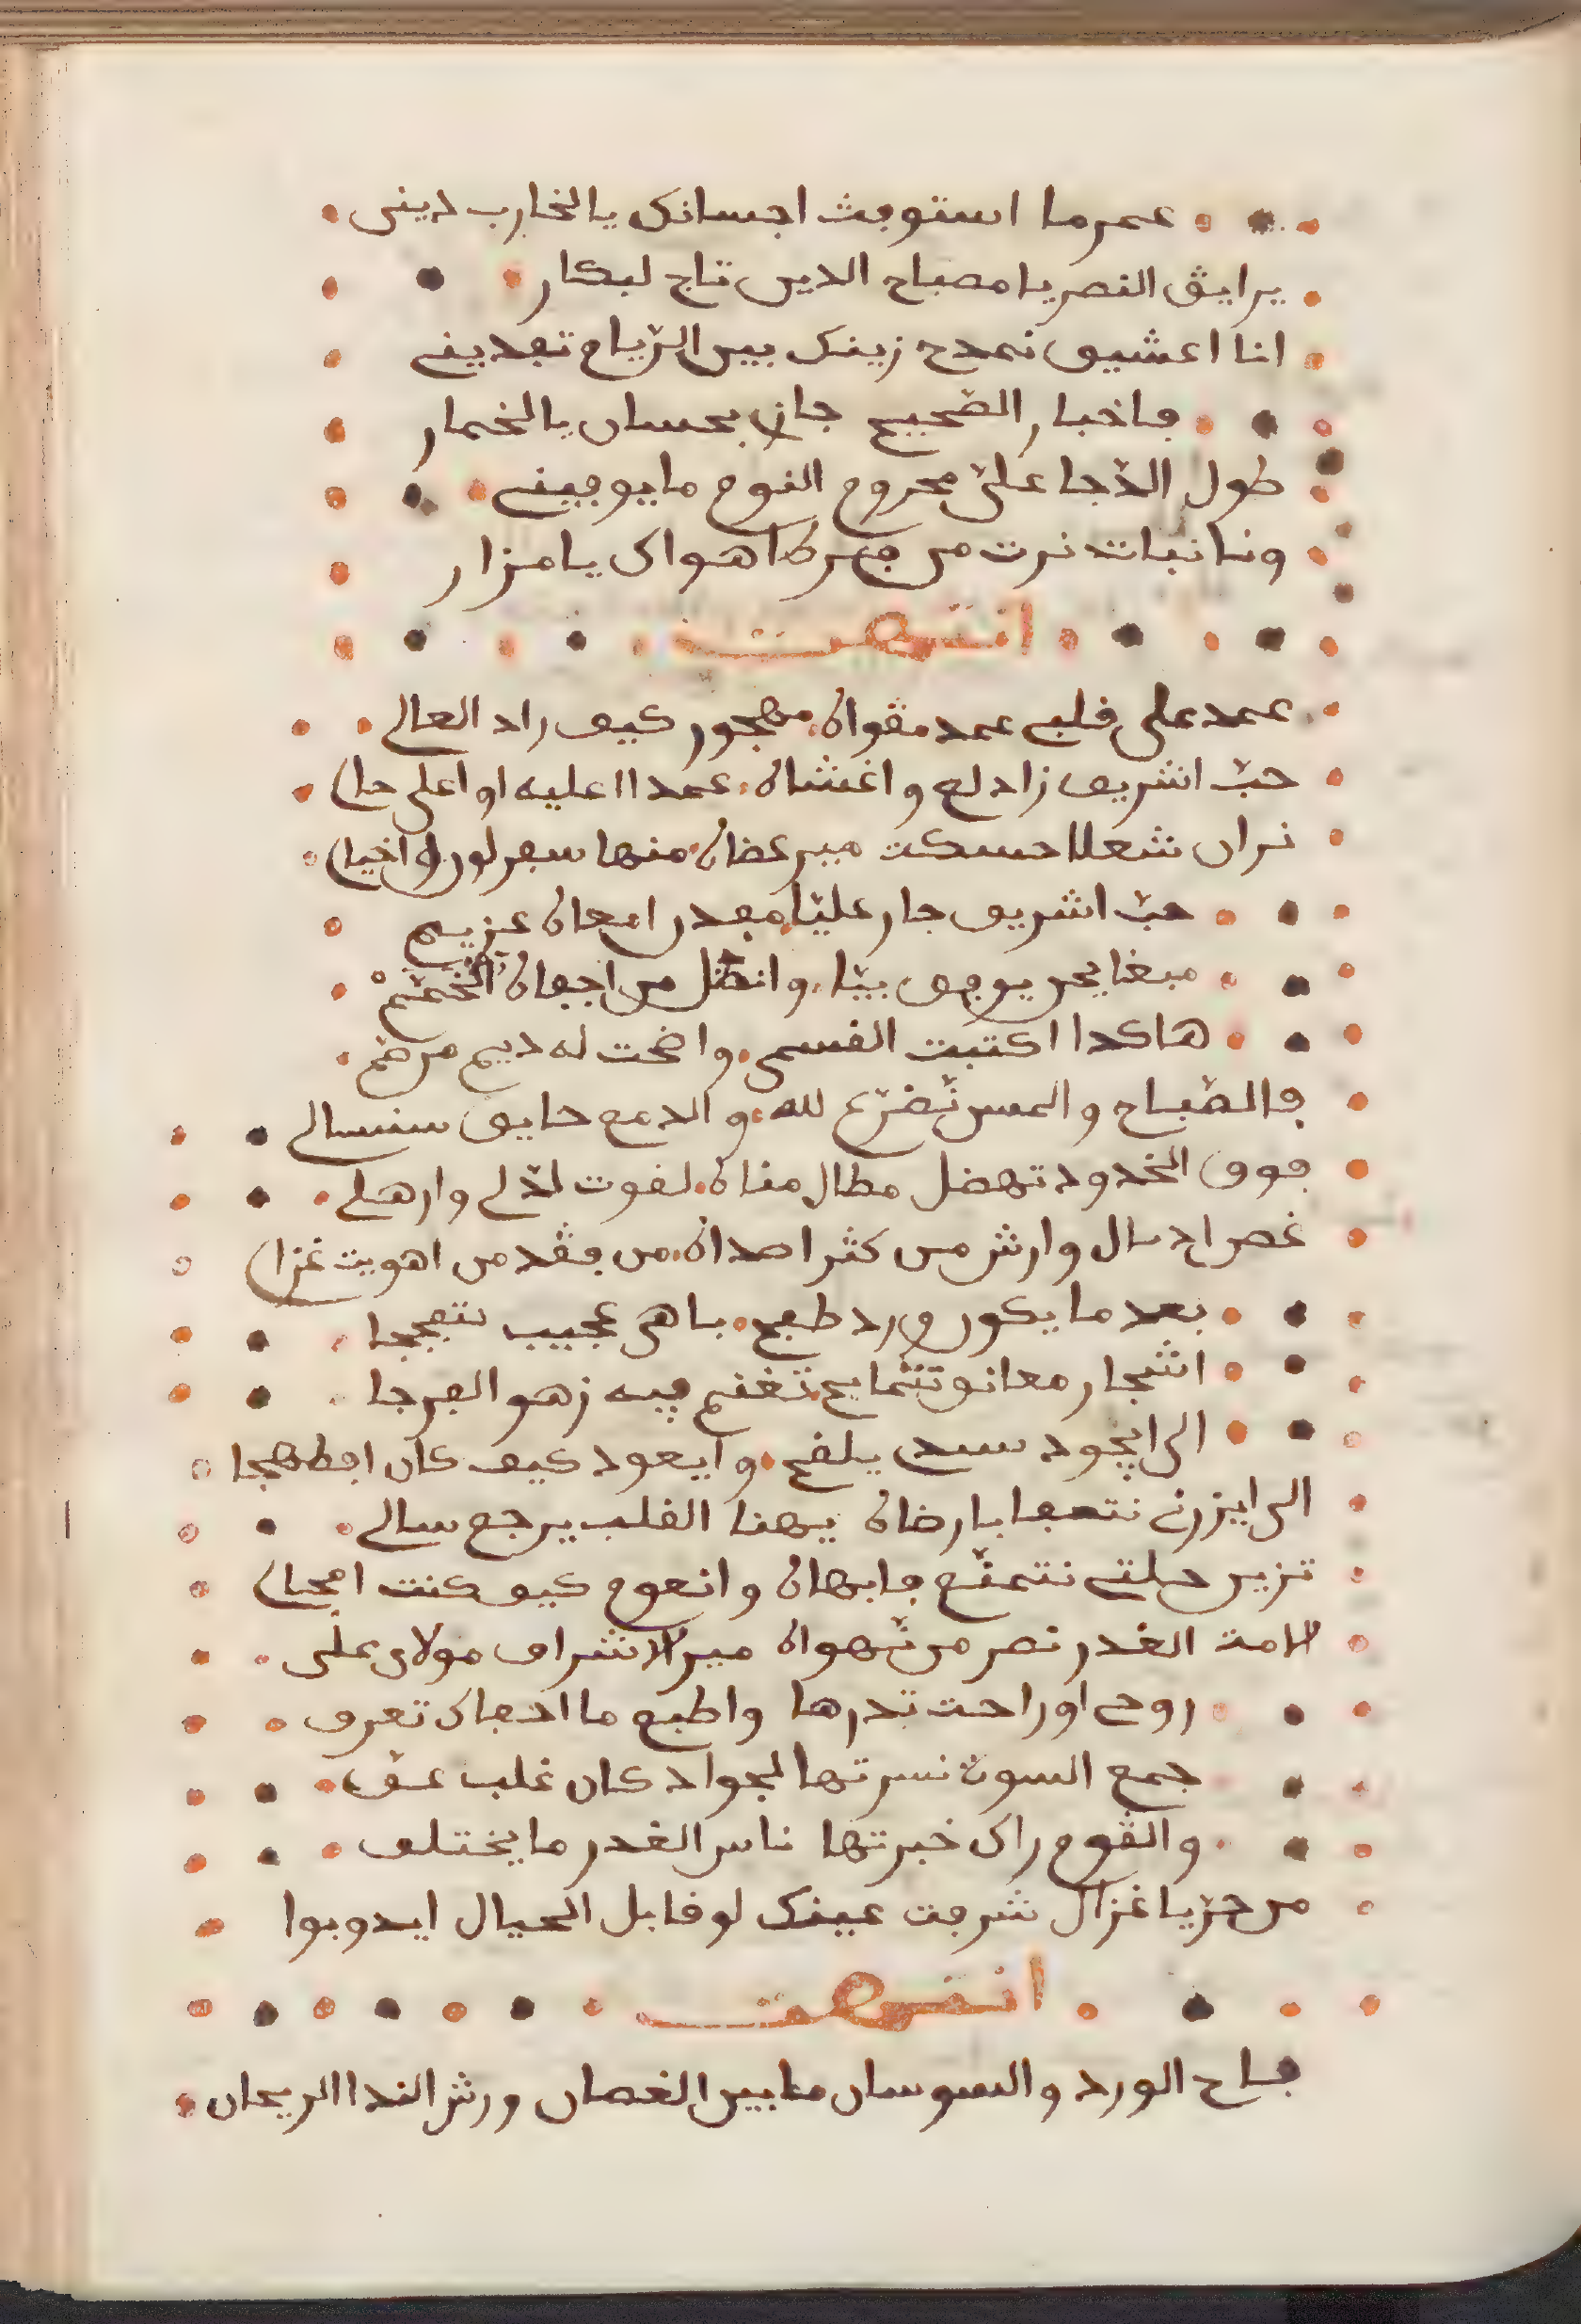 عمرما استوفت اجسانك يالخارب ديني
يرايق النصر يا مصباح الدين تاج لبكار
انا اعشيق نمدح زينك بين الرّياح تفدينى
باخبار الصّحيح جان بحسان يالخمار
طول الدّجا علىّ محروم النوم ما يوفينى
ونا نبات نرت من جمرة اهواك يا مزار
انتهت
عمد على قلبى عمد مقواه مهجور كيف راد العالى
حبّ اشريف زاد لع واغشاه عمدا اعليه اواعلى حال
نران شعلا حسكت مير عضاه منها سفر لور اخيال
حبّ اشريف جار عليّا مفدر امعاه عزيم
مبغا يحن يوفى بيّا وانظل من اجفاه انخمّم
هاكدا اكتبت القسمى واضحت له ديم مرغم
فالصّباح والمسى نّضرّع لله والدمع حايف سنسالى
فوق الخدود تهضل مطال مناه لغوت لذلى وارهلى
غصر اد سال وارش من كثر اصداه من فقد من اهويت غزال
بعد ما يكون ورد طبع باهى عجيب نتعججا
اشجار معانو تتمايح نغنم فيه زهو الفرجا
الى ايجود سيد يلفع وايعود كيف كان افطهجا
الى ايزرن نتصفا بارضاه يهنا القلب يرجع سالى
تزين حلتى نتمتّع بابهاه وانعوم كيف كنت امحال
لامت الغدر نصر من نّهواه مير الاشراف مولاى على
روح اوراحت تدرها واطبع ما ادعاك تعرف
جمع السون نسرتها لجواد كان غلب عنّف
والقوم راى خبرتها ناس الغدر ما يختلف
من حرّ يا غزال شرفت عينك لوقابل الحيال ايدوبوا
انتهت
فاح الورد والسوسان مابين الغصان ورش الندا الريحان